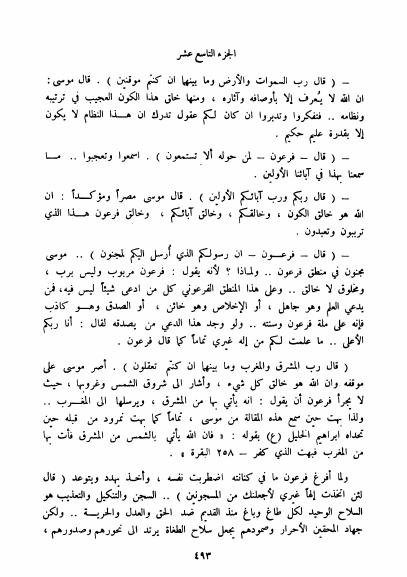 الجزء التاسع عشر
– ( قال رب السموات والأرض وما بينها ان كنتم موقنين ) . قال موسى :
ان الله لا يُعرف إلا بأوصافه وآثاره ، ومنها خلق هذا الكون العجيب في ترتيبه
ونظامه .. فتفكروا وتدبروا ان كان لكم عقول تدرك ان هذا النظام لا يكون
إلا بقدرة عليم حكيم .
– ( قال – فرعون – لمن حوله ألا تستمعون ) . اسمعوا وتعجبوا .. ما
سمعنا بهذا في آبائنا الأولين .
– ( قال ربكم ورب آبائكم الأولين ) . قال موسى مصراً ومؤكداً : ان
الله هو خالق الكون ، وخالقكم ، وخالق آبائكم ، وخالق فرعون هذا الذي
ترببون وتعبدون .
– ( قال – فرعون – ان رسولكم الذي أُرسل اليكم لمجنون ) .. موسى
مجنون في منطق فرعون .. ولماذا ؟ لأنه يقول : فرعون مربوب وليس برب ،
ومخلوق لا خالق .. وعلى هذا المنطق الفرعوني كل من ادعى شيئاً ليس فيه، فمن
يدعي العلم وهو جاهل ، أو الإخلاص وهو خائن ، أو الصدق وهو كاذب
فإنه على ملة فرعون وسنته .. ولو وجد هذا الدعي من يصدقه لقال : أنا ربكم
الأعلى .. ما علمت لكم من إله غيري تماماً كما قال فرعون .
– ( قال رب المشرق والمغرب وما بينها ان كنتم تعقلون ) . أصر موسى على
موقفه وان الله هو خالق كل شيء ، وأشار الى شروق الشمس وغروبها ، حيث
لا يجرأ فرعون أن يقول : انه يأتي بها من المشرق ، ويرسلها الى المغرب ..
ولذا بهت حين سمع هذه المقالة من موسى ، تماماً كما بهت نمرود من قبله حين
تحداه ابراهيم الخليل (ع) بقوله : « فان الله يأتي بالشمس من المشرق فأت بها
من المغرب فبهت الذي كفر – ٢٥٨ البقرة » .
ولما أفرغ فرعون ما في كنانته اضطربت نفسه ، وأخذ يهدد ويتوعد ( قال
لئن اتخذت إلهاً غيري لأجعلنك من المسجونين ) .. السجن والتنكيل والتعذيب هو
السلاح الوحيد لكل طاغ وباغ منذ القديم ضد الحق والعدل والحرية .. ولكن
جهاد المحقين الأحرار وصمودهم يجعل سلاح الطغاة يرتد الى نحورهم وصدورهم ،
٤٩٣